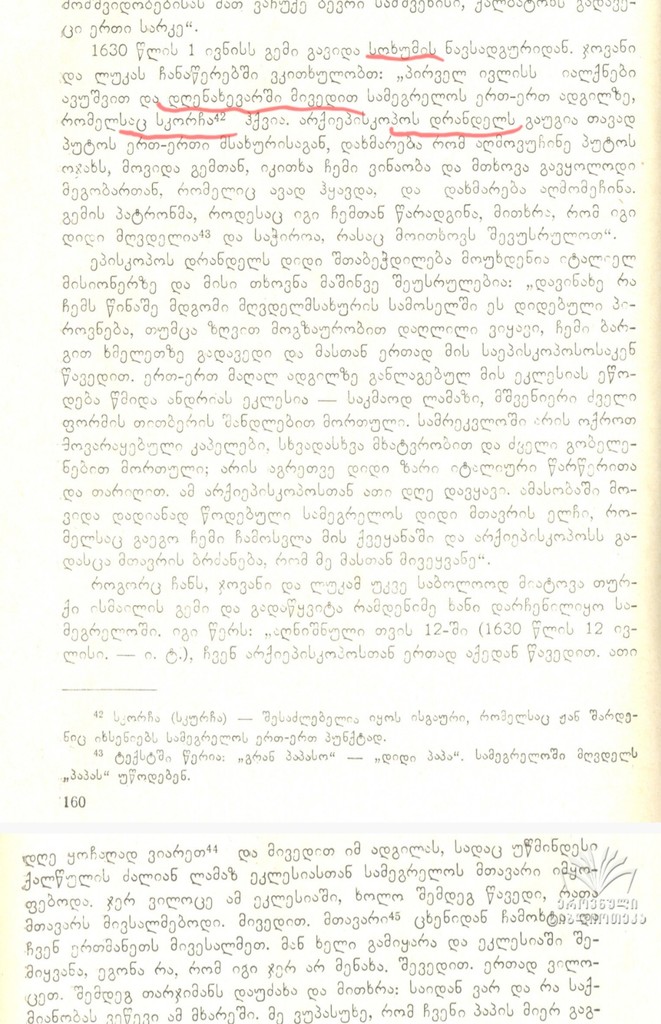 მომშვიდობებისას მათ ვაჩუქე ბევრი სამშვენისი, ქალბატონს გადავე-
ცი ერთი სარკე“.
1630 წლის 1 ივნისს გემი გავიდა სოხუმის ნავსადგურიდან. ჯოვანი
და ლუკას ჩანაწერებში ვკითხულობთ: „პირველ ივლისს იალქნები
ავუშვით და დღენახევარში მივედით სამეგრელოს ერთ-ერთ ადგილზე,
რომელსაც სკორჩა⁴² ჰქვია. არქიეპისკოპოს დრანდელს გაუგია თავად
პუტოს ერთ-ერთი მსახურისაგან, დახმარება რომ აღმოვუჩინე პუტოს
ოჯახს, მოვიდა გემთან, იკითხა ჩემი ვინაობა და მთხოვა გავყოლოდი
მეგობართან, რომელიც ავად ჰყავდა, და დახმარება აღმომეჩინა.
გემის პატრონმა, როდესაც იგი ჩემთან წარადგინა, მითხრა, რომ იგი
დიდი მღვდელია⁴³ და საჭიროა, რასაც მოითხოვს შევუსრულოთ“.
ეპისკოპოს დრანდელს დიდი შთაბეჭდილება მოუხდენია იტალიელ
მისიონერზე და მისი თხოვნა მაშინვე შეუსრულებია: „დავინახე რა
ჩემს წინაშე მდგომი მღვდელმსახურის სამოსელში ეს დიდებული პი-
როვნება, თუმცა ზღვით მოგზაურობით დაღლილი ვიყავი, ჩემი ბარ-
გით ხმელეთზე გადავედი და მასთან ერთად მის საეპისკოპოსოსაკენ
წავედით. ერთ-ერთ მაღალ ადგილზე განლაგებულ მის ეკლესიას ეწო-
დება წმიდა ანდრიას ეკლესია — საკმაოდ ლამაზი, მშვენიერი ძველი
ფორმის თითბერის შანდლებით მორთული. სამრეკვლოში არის ოქროთ
მოვარაყებული კაპელები, სხვადასხვა მხატვრობით და ძველი გობელე-
ნებით მორთული; არის აგრეთვე დიდი ზარი იტალიური წარწერითა
და თარიღით. ამ არქიეპისკოპოსთან ათი დღე დავყავი. ამასობაში მო-
ვიდა დადიანად წოდებული სამეგრელოს დიდი მთავრის ელჩი, რო-
მელსაც გაეგო ჩემი ჩამოსვლა მის ქვეყანაში და არქიეპისკოპოსს გა-
დასცა მთავრის ბრძანება, რომ მე მასთან მივეყვანე“.
როგორც ჩანს, ჯოვანი და ლუკამ უკვე საბოლოოდ მიატოვა თურ-
ქი ისმაილის გემი და გადაწყვიტა რამდენიმე ხანი დარჩენილიყო სა-
მეგრელოში. იგი წერს: „აღნიშნული თვის 12-ში (1630 წლის 12 ივ-
ლისი. — ი. ტ.), ჩვენ არქიეპისკოპოსთან ერთად აქედან წავედით. ათი
⁴² სკორჩა (სკურჩა) — შესაძლებელია იყოს ისგაური, რომელსაც ჟან შარდე-
ნიც იხსენიებს სამეგრელოს ერთ-ერთ პუნქტად.
⁴³ ტექსტში წერია: „გრან პაპასო“ — „დიდი პაპა“. სამეგრელოში მღვდელს
„პაპას“ უწოდებენ.
160
დღე ყოჩაღად ვიარეთ⁴⁴ და მივედით იმ ადგილას, სადაც უწმინდესი
ქალწულის ძალიან ლამაზ ეკლესიასთან სამეგრელოს მთავარი იმყო-
ფებოდა. ჯერ ვილოცე ამ ეკლესიაში, ხოლო შემდეგ წავედი, რათა
მთავარს მივსალმებოდი. მივედით. მთავარი⁴⁵ ცხენიდან ჩამოხტა და
ჩვენ ერთმანეთს მივესალმეთ. მან ხელი გამიყარა და ეკლესიაში შე-
მიყვანა, ეგონა რა, რომ იგი ჯერ არ მენახა. შევედით. ერთად ვილო-
ცეთ. შემდეგ თარჯიმანს დაუძახა და მითხრა: საიდან ვარ და რა საქ-
მიანობას ვეწევი ამ მხარეში. მე ვუპასუხე, რომ ჩვენი პაპის მიერ გაგ-
ეროვნული
ბიბლიოთეკა